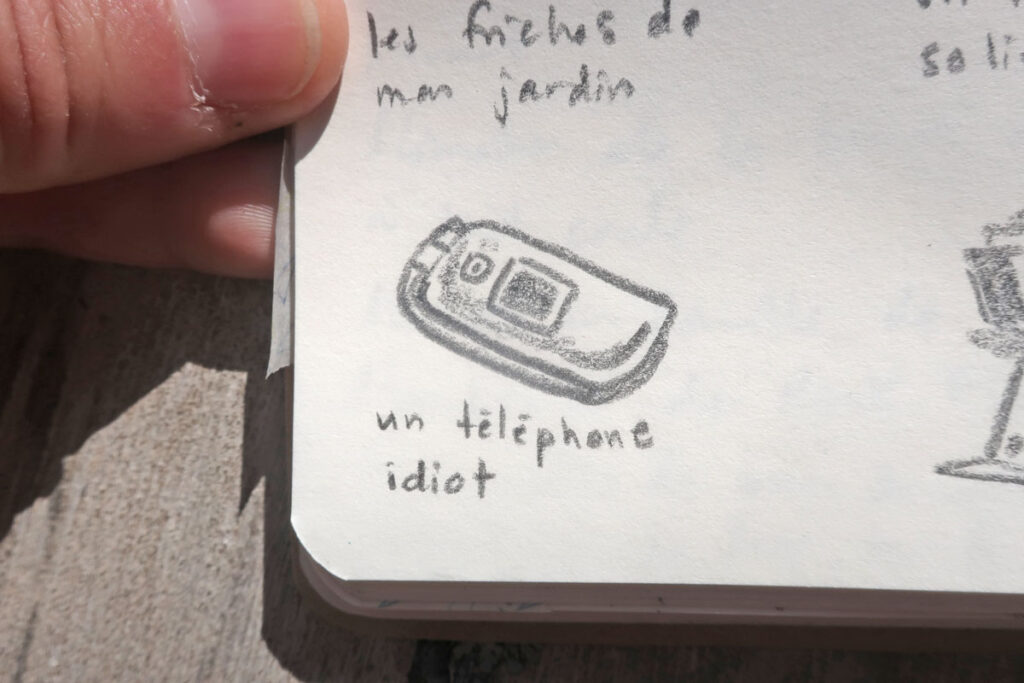 les friches de
mon jardin
un téléphone
idiot